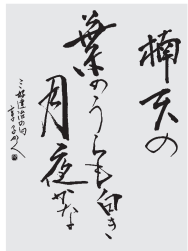 楠天の
葉のうらも白き
月夜かな
三好達治の句